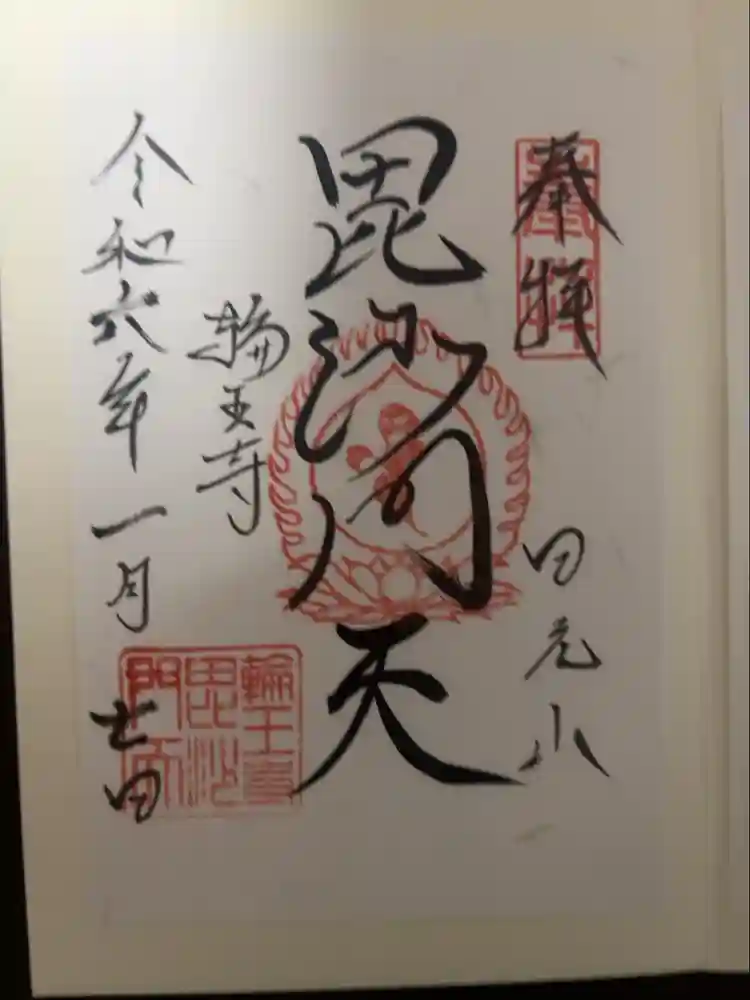 奉拝
奉拝
日光山
毘沙門天
輪王寺
令和六年一月廿日
輪王寺
毘沙
門天